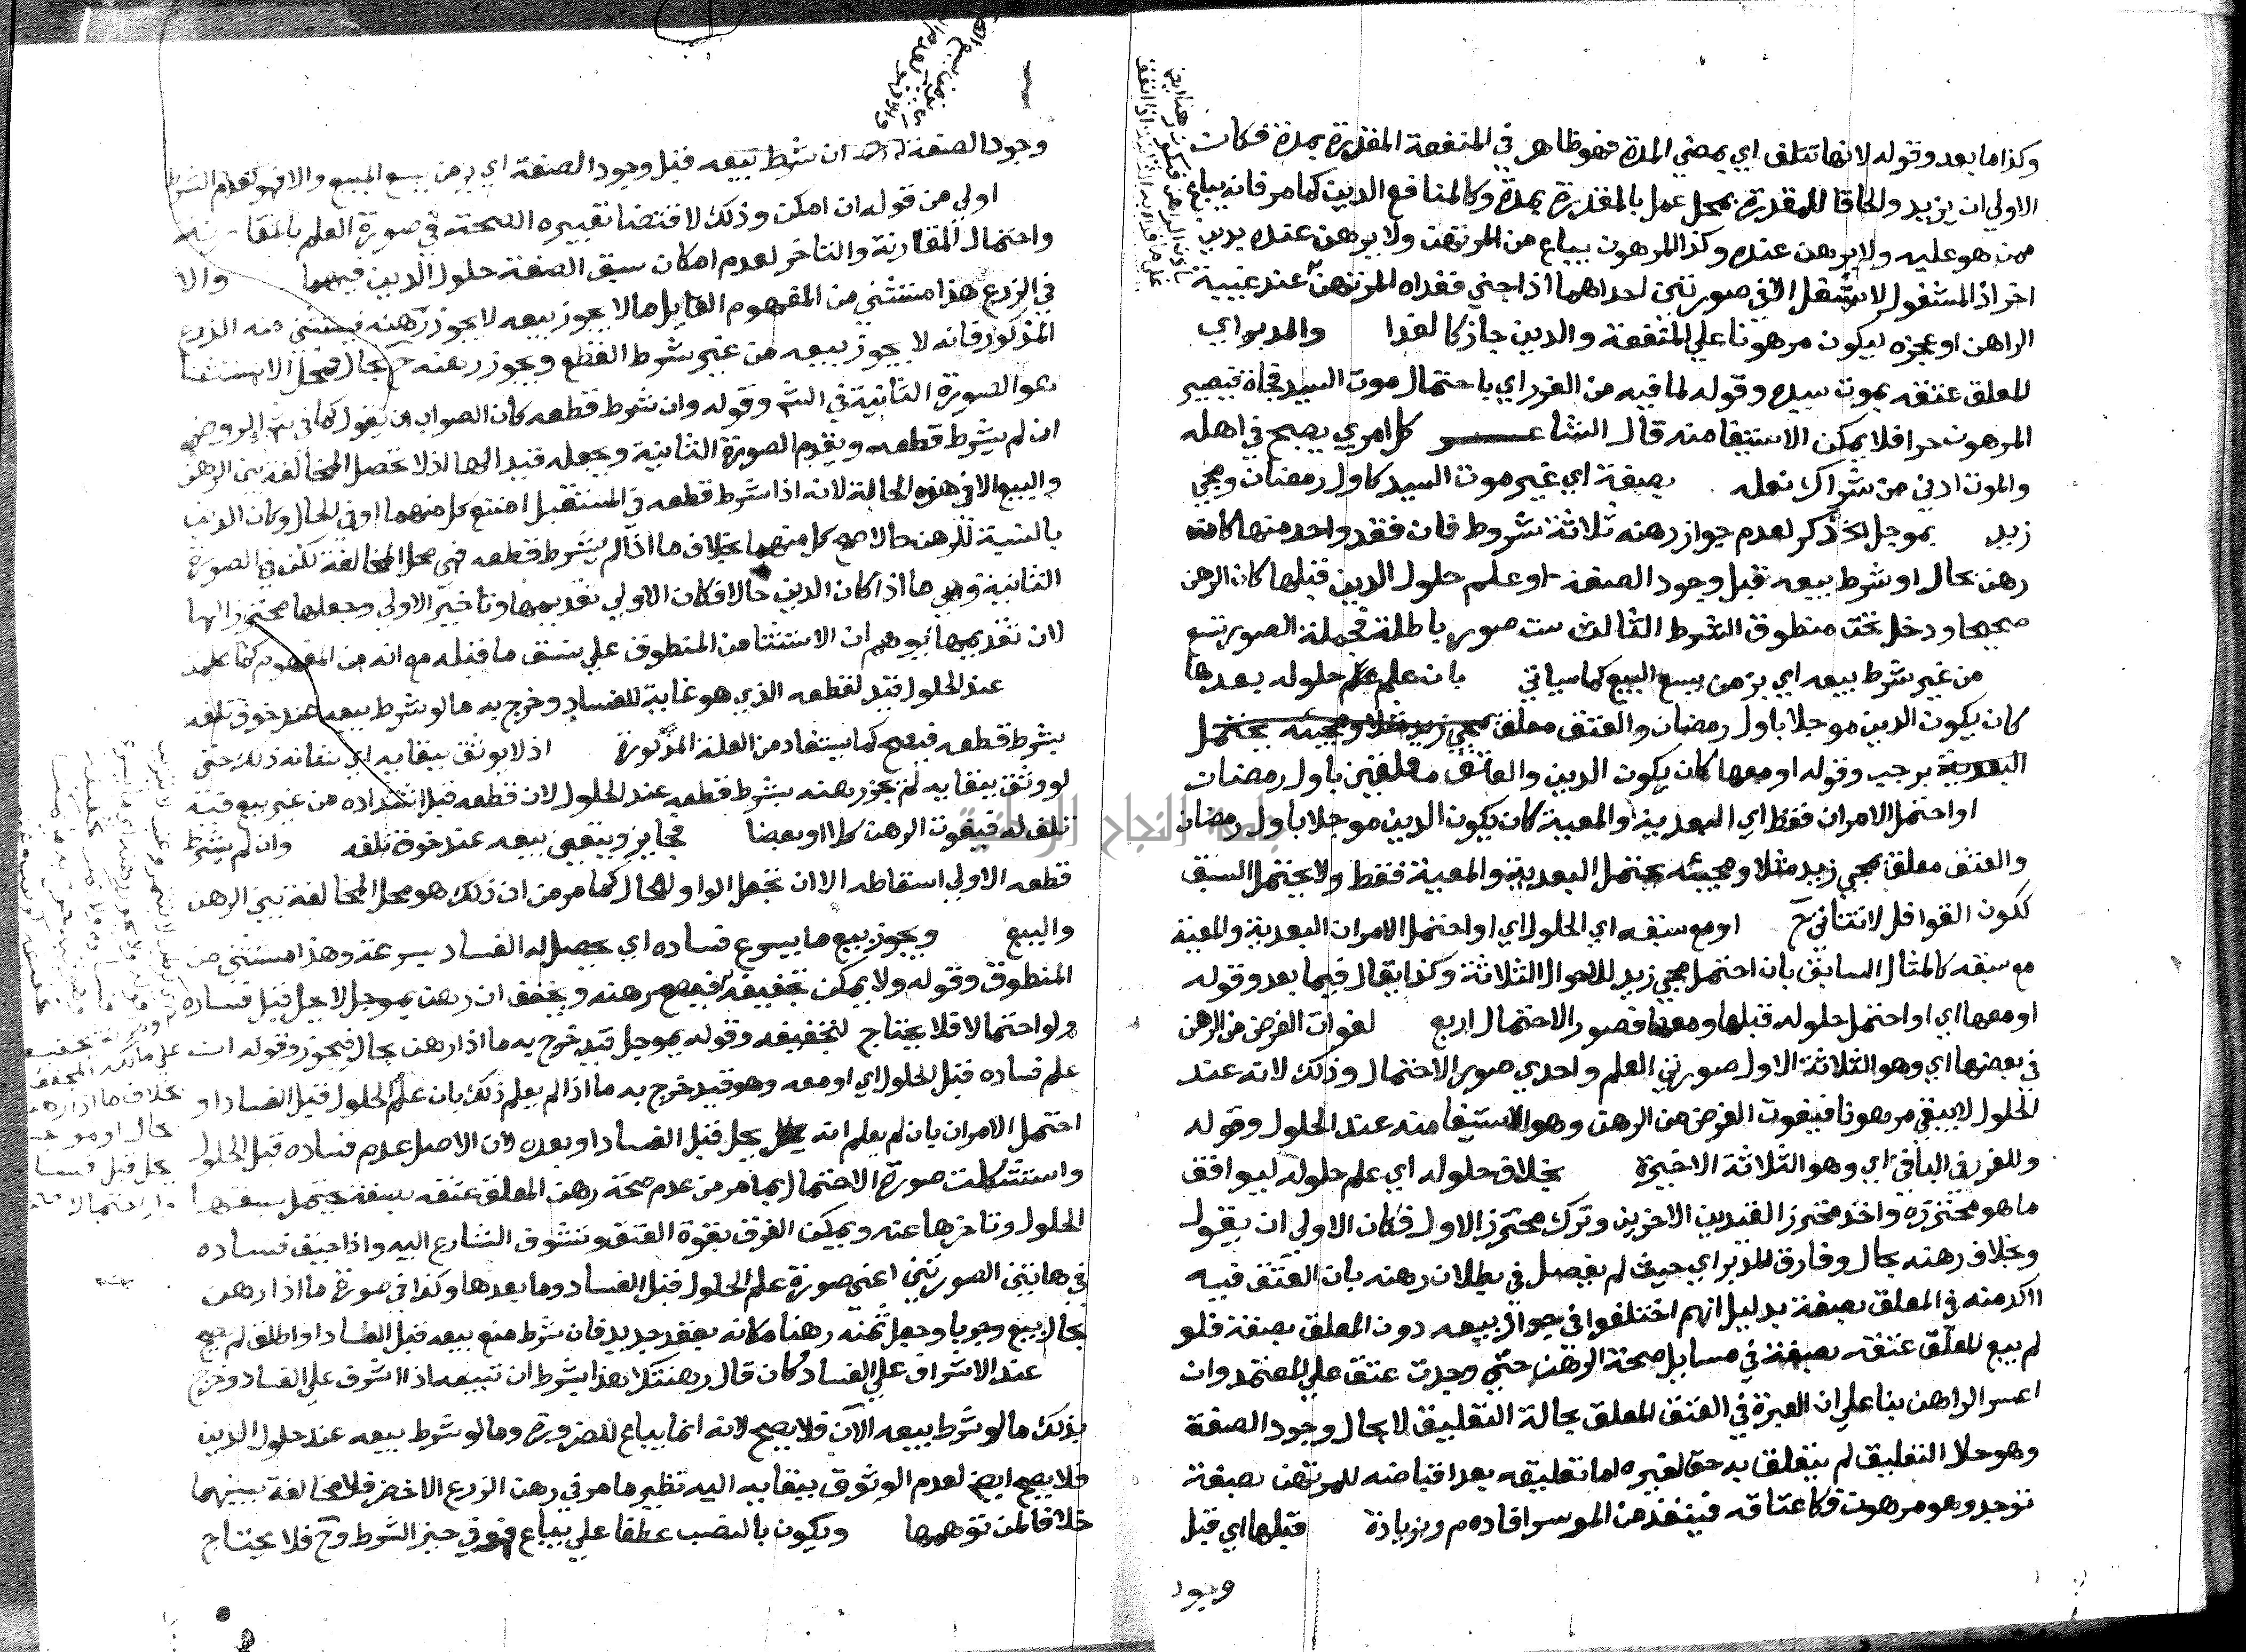 وكذا ما بعد وقوله لانها تتلف اي بمضي المدة فهو ظاهر في المنفعة المقدرة بمدة فكان
الاولي ان يزيد والحاقا للمقدرة بمحل عمل بالمقدرة بمدة وكالمنافع الدين كما مر فانه يباع
ممن هو عليه ولا يرهن عنده وكذا المرهون يباع من المرتهن ولا يرهن عنده بدين
اخر اذ المشغول لا يشغل الا في صورتين احداهما اذا جني ففداه المرتهن عند غيبة
الراهن او عجزه ليكون مرهونا علي المنفعة والدين جاز كالفدا والمدبر اي
المعلق عتقه بموت سيده وقوله لما فيه من الغرر اي باحتمال موت السيد فجاة فيصير
المرهون حرا فلا يمكن الاستيفا منه قال الشاعر كل امري يصبح في اهله
والموت ادني من شراك نعله بصفة اي غير موت السيد كاول رمضان ومجي
زيد بموجل الخ ذكر لعدم جواز رهنه ثلاثة شروط فان فقد واحد منها كان
رهن بحال او شرط بيعه قبل وجود الصفة او علم حلول الدين قبلها كان الرهن
صحيحا ودخل تحت منطوق الشرط الثالث ست صور باطلة فجملة الصور تسع
من غير شرط بيعه اي بزمن يسع البيع كما سياتي بان علم حلوله بعدها
كان يكون الدين موجلا باول رمضان والعتق معلق بمجي زيد مثلا ومجيئه يحتمل
البعدية برجب وقوله او معها كان يكون الدين والعتق معلقين باول رمضان
او احتمل الامران فقط اي البعدية والمعية كان يكون الدين موجلا باول رمضان
والعتق معلق بمجي زيد مثلا ومجيئه يحتمل البعدية والمعية فقط ولا يحتمل السبق
ككون القوافل لا تتاتي ح او مع سبقه اي الحلول اي او احتمل الامران البعدية والمعية
مع سبقه كالمثال السابق بان احتمل مجي زيد للاحوال الثلاثة وكذا يقال فيما بعد وقوله
او معها اي او احتمل حلوله قبلها ومعها فصور الاحتمال اربع لفوات الغرض من الرهن
في بعضها اي وهو الثلاثة الاول صورتي العلم واحدي صور الاحتمال وذلك لانه عند
الحلول لا يبقي مرهونا فيفوت الغرض من الرهن وهو الاستيفا منه عند الحلول وقوله
وللغرر في الباقي اي وهو الثلاثة الاخيرة بخلاف حلوله اي علم حلوله ليوافق
ما هو محترزه واخذ محترز القيدين الاخرين وترك محترز الاول فكان الاولي ان يقول
وبخلاف رهنه بحال وفارق المدبر اي حيث لم يفصل في بطلان رهنه بان العتق فيه
اكد منه في المعلق بصفة بدليل انهم اختلفوا في جواز بيعه دون المعلق بصفة فلو
لم يبع المعلق عتقه بصفة في مسايل صحة الرهن حتي وجدت عتق علي المعتمد وان
اعسر الراهن بنا علي ان العبرة في العتق المعلق بحالة التعليق لا بحال وجود الصفة
وهو حال التعليق لم يتعلق به حق لغيره اما تعليقه بعد اقباضه للمرتهن بصفة
توجد وهو مرهون فكاعتاقه فينفذ من الموسر افاده م ر وزيادة قبلها اي قبل
وجود
وجود الصفة ان شرط بيعه قبل وجود الصفة اي بزمن يسع المبيع والا فهو كعدم الشرط
اولي من قوله ان امكن وذلك لاقتضا تعبيره الصحة في صورة العلم بالمقارنة
واحتمال المقارنة والتاخر لعدم امكان سبق الصفة حلول الدين فيهما والا
في الزرع هذا مستثني من المفهوم القايل ما لا يجوز بيعه لا يجوز رهنه فيستثني منه الزرع
المذكور فانه لا يجوز بيعه من غير شرط القطع ويجوز رهنه ح بحال فمحل الاستثنا
هو الصورة الثانية في الش وقوله وان شرط قطعه كان الصواب ان يقول كما في ش الروض
ان لم يشرط قطعه ويقدم الصورة الثانية ويجعله قيدا لها اذ لا تحصل المخالفة بين الرهن
والبيع الا في هذه الحالة لانه اذا شرط قطعه في المستقبل امتنع كل منهما او في الحال وكان الدين
بالنسبة للرهن حالا صح كل منهما بخلاف ما اذا لم يشرط قطعه فهي محل المخالفة لكن في الصورة
الثانية وهي ما اذا كان الدين حالا فكان الاولي تقديمها وتاخير الاولي وجعلها محترزا لها
لان تقديمها يوهم ان الاستثنا من المنطوق علي نسق ما قبله مع انه من المفهوم كما علمت
عند الحلول قيد لقطعه الذي هو غاية للفساد وخرج به ما لو شرط بيعه عند خوف تلفه
بشرط قطعه فيصح كما يستفاد من العلة المذكورة اذ لا يوثق ببقايه اي بقا ذلك حتي
لو وثق ببقايه لم يجز رهنه بشرط قطعه عند الحلول لان قطعه قبل اشتداده من غير بيع فيه
تلف له فيفوت الرهن كلا او بعضا فجايز وينبغي بيعه عند خوف تلفه وان لم يشرط
قطعه الاولي اسقاطه الا ان تجعل الواو للحال كما مر من ان ذلك هو محل المخالفة بين الرهن
والبيع ويجوز بيع ما يسرع فساده اي يحصل له الفساد بسرعة وهذا مستثني من
المنطوق وقوله ولا يمكن تجفيفه فيصح رهنه ويجفف ان رهن بموجل لا يحل قبل فساده
ولو احتمالا فلا يحتاج لتجفيفه وقوله بموجل قيد خرج به ما اذا رهن بحال فيجوز وقوله ان
علم فساده قبل الحلول اي او معه وهو قيد خرج به ما اذا لم يعلم ذلك بان علم الحلول قبل الفساد او
احتمل الامران بان لم يعلم انه يحل قبل الفساد او بعده لان الاصل عدم فساده قبل الحلول
واستشكلت صورة الاحتمال بما مر من عدم صحة رهن المعلق عتقه بصفة يحتمل سبقها
الحلول وتاخرها عنه ويمكن الفرق بقوة العتق وتشوف الشارع اليه واذا خيف فساده
في هاتين الصورتين اعني صورة علم الحلول قبل الفساد وما بعدها وكذا في صورة ما اذا رهن
بحال بيع وجوبا وجعل ثمنه رهنا مكانه بعقد جديد فان شرط منع بيعه قبل الفساد او اطلق لم يصح
عند الاشراف علي الفساد كان قال رهنتك هذا بشرط ان تبيعه اذا اشرف علي الفساد وخرج
بذلك ما لو شرط بيعه الآن فلا يصح لانه انما يباع للضرورة وما لو شرط بيعه عند حلول الدين
فلا يصح ايض لعدم الوثوق ببقايه اليه نظير ما مر في رهن الزرع الاخضر فلا مخالفة بينهما
خلافا لمن توهمها ويكون بالنصب عطفا علي يباع فهو في حيز الشرط وح فلا يحتاج